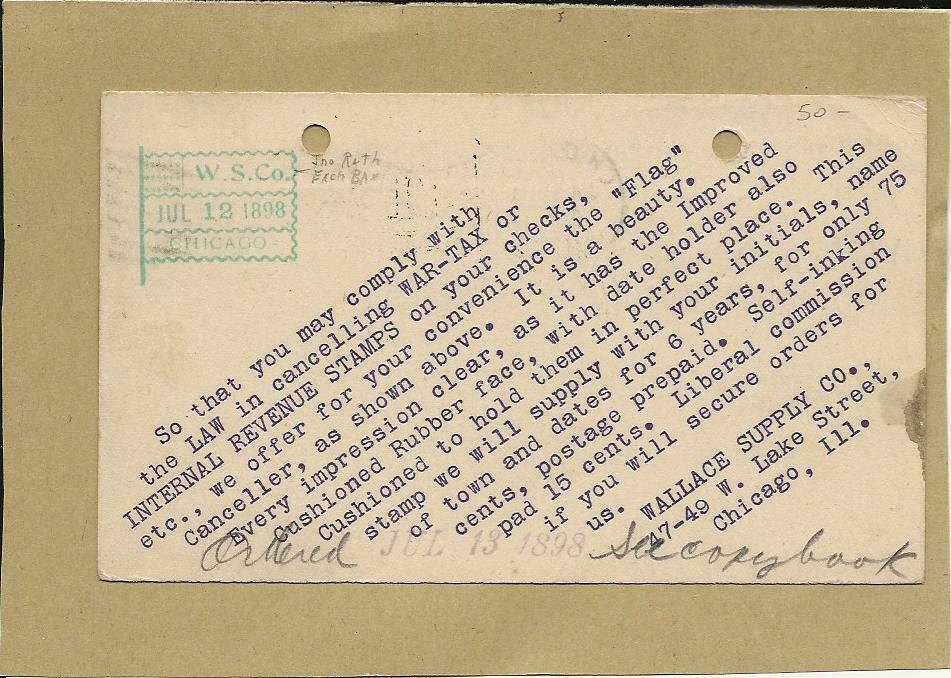 50-
W.S.Co.
JUL 12 1898
CHICAGO
Jno Rath
Exch Bank
So that you may comply with
the LAW in cancelling WAR-TAX or
INTERNAL REVENUE STAMPS on your checks,
etc., we offer for your convenience the "Flag"
Canceller, as shown above. It is a beauty.
Every impression clear, as it has the Improved
Cushioned Rubber face, with date holder also
Cushioned to hold them in perfect place. This
stamp we will supply with your initials, name
of town and dates for 6 years, for only 75
cents, postage prepaid. Self-inking
pad 15 cents. Liberal commission
if you will secure orders for
us. WALLACE SUPPLY CO.,
47-49 W. Lake Street,
Chicago, Ill.
Ordered JUL 13 1898 See copy book